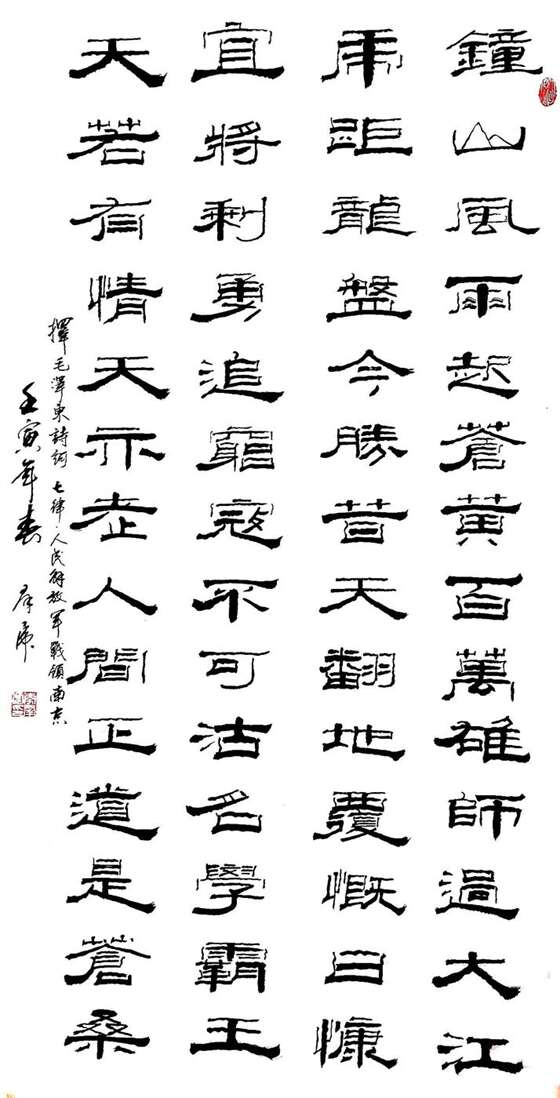 鐘山風雨起蒼黃百萬雄師過大江
虎距龍盤今勝昔天翻地覆慨曰慷
宜將剩勇追窮寇不可沽名學霸王
天若有情天亦老人間正道是蒼桑
擇毛澤東詩詞 七律·人民解放軍戰領南京
壬寅年春